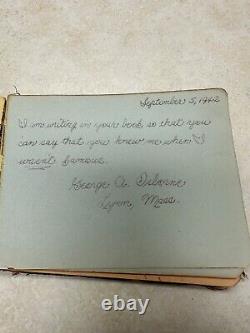 September 5, 1942
I am writing in your book so that you
can say that you knew me when I
wasnt famous.
George A. Osborne
Lynn, Mass.
ebay